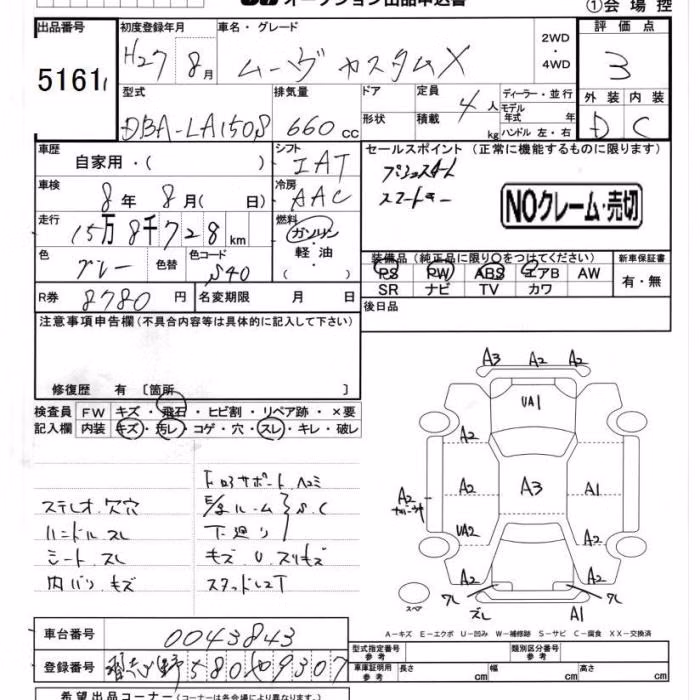 オークション出品申込書
①会場控
出品番号 初度登録年月 車名・グレード 評価点
5161 H27 8月 ムーヴ カスタムX 2WD・4WD 3
型式 排気量 ドア 定員 ディーラー・並行 外装 内装
形状 積載 4人 モデル年式 年式
DBA-LA150S 660cc kg ハンドル 左・右 D C
車歴 自家用・( ) シフト IAT セールスポイント (正常に機能するものに限ります)
プッシュスタート
車検 8年 8月( 日) 冷房 AAC スマートキー
NOクレーム・売切
走行 15万8千728km 燃料 ガソリン・軽油・( )
色 グレー 色替 色コード S40
装備品(純正品に限り〇をつけてください) 新車保証書
PS PW ABS エアB AW 有・無
SR ナビ TV カワ
R券 8780円 名変期限 月 日
後日品
注意事項申告欄(不具合内容等は具体的に記入して下さい)
修復歴 有 〔箇所 〕
検査員記入欄 FW キズ・飛石・ヒビ割・リペア跡・×要
内装 キズ・汚レ・コゲ・穴・スレ・キレ・破レ
A3 A2 A2
UA1
A2
A2 A3 A1
A2
UA2 A2
A2 A2
ワレ ワレ
スペア ズレ A1
コアサポート ヘコミ
ステレオ欠穴 E/gルーム S,C
ハンドル スレ 下廻り
シート スレ キズ U スリキズ
内バリ キズ スタッドレスT
A-キズ E-エクボ U-凹み W-補修跡 S-サビ C-腐食 XX-交換済
車台番号 0043843
型式指定番号 参考 類別区分番号 参考
登録番号 習志野580 09307
車庫証明用 参考 長さ cm 幅 cm 高さ cm
希望出品コーナー(コーナーは各会場により異なります。)